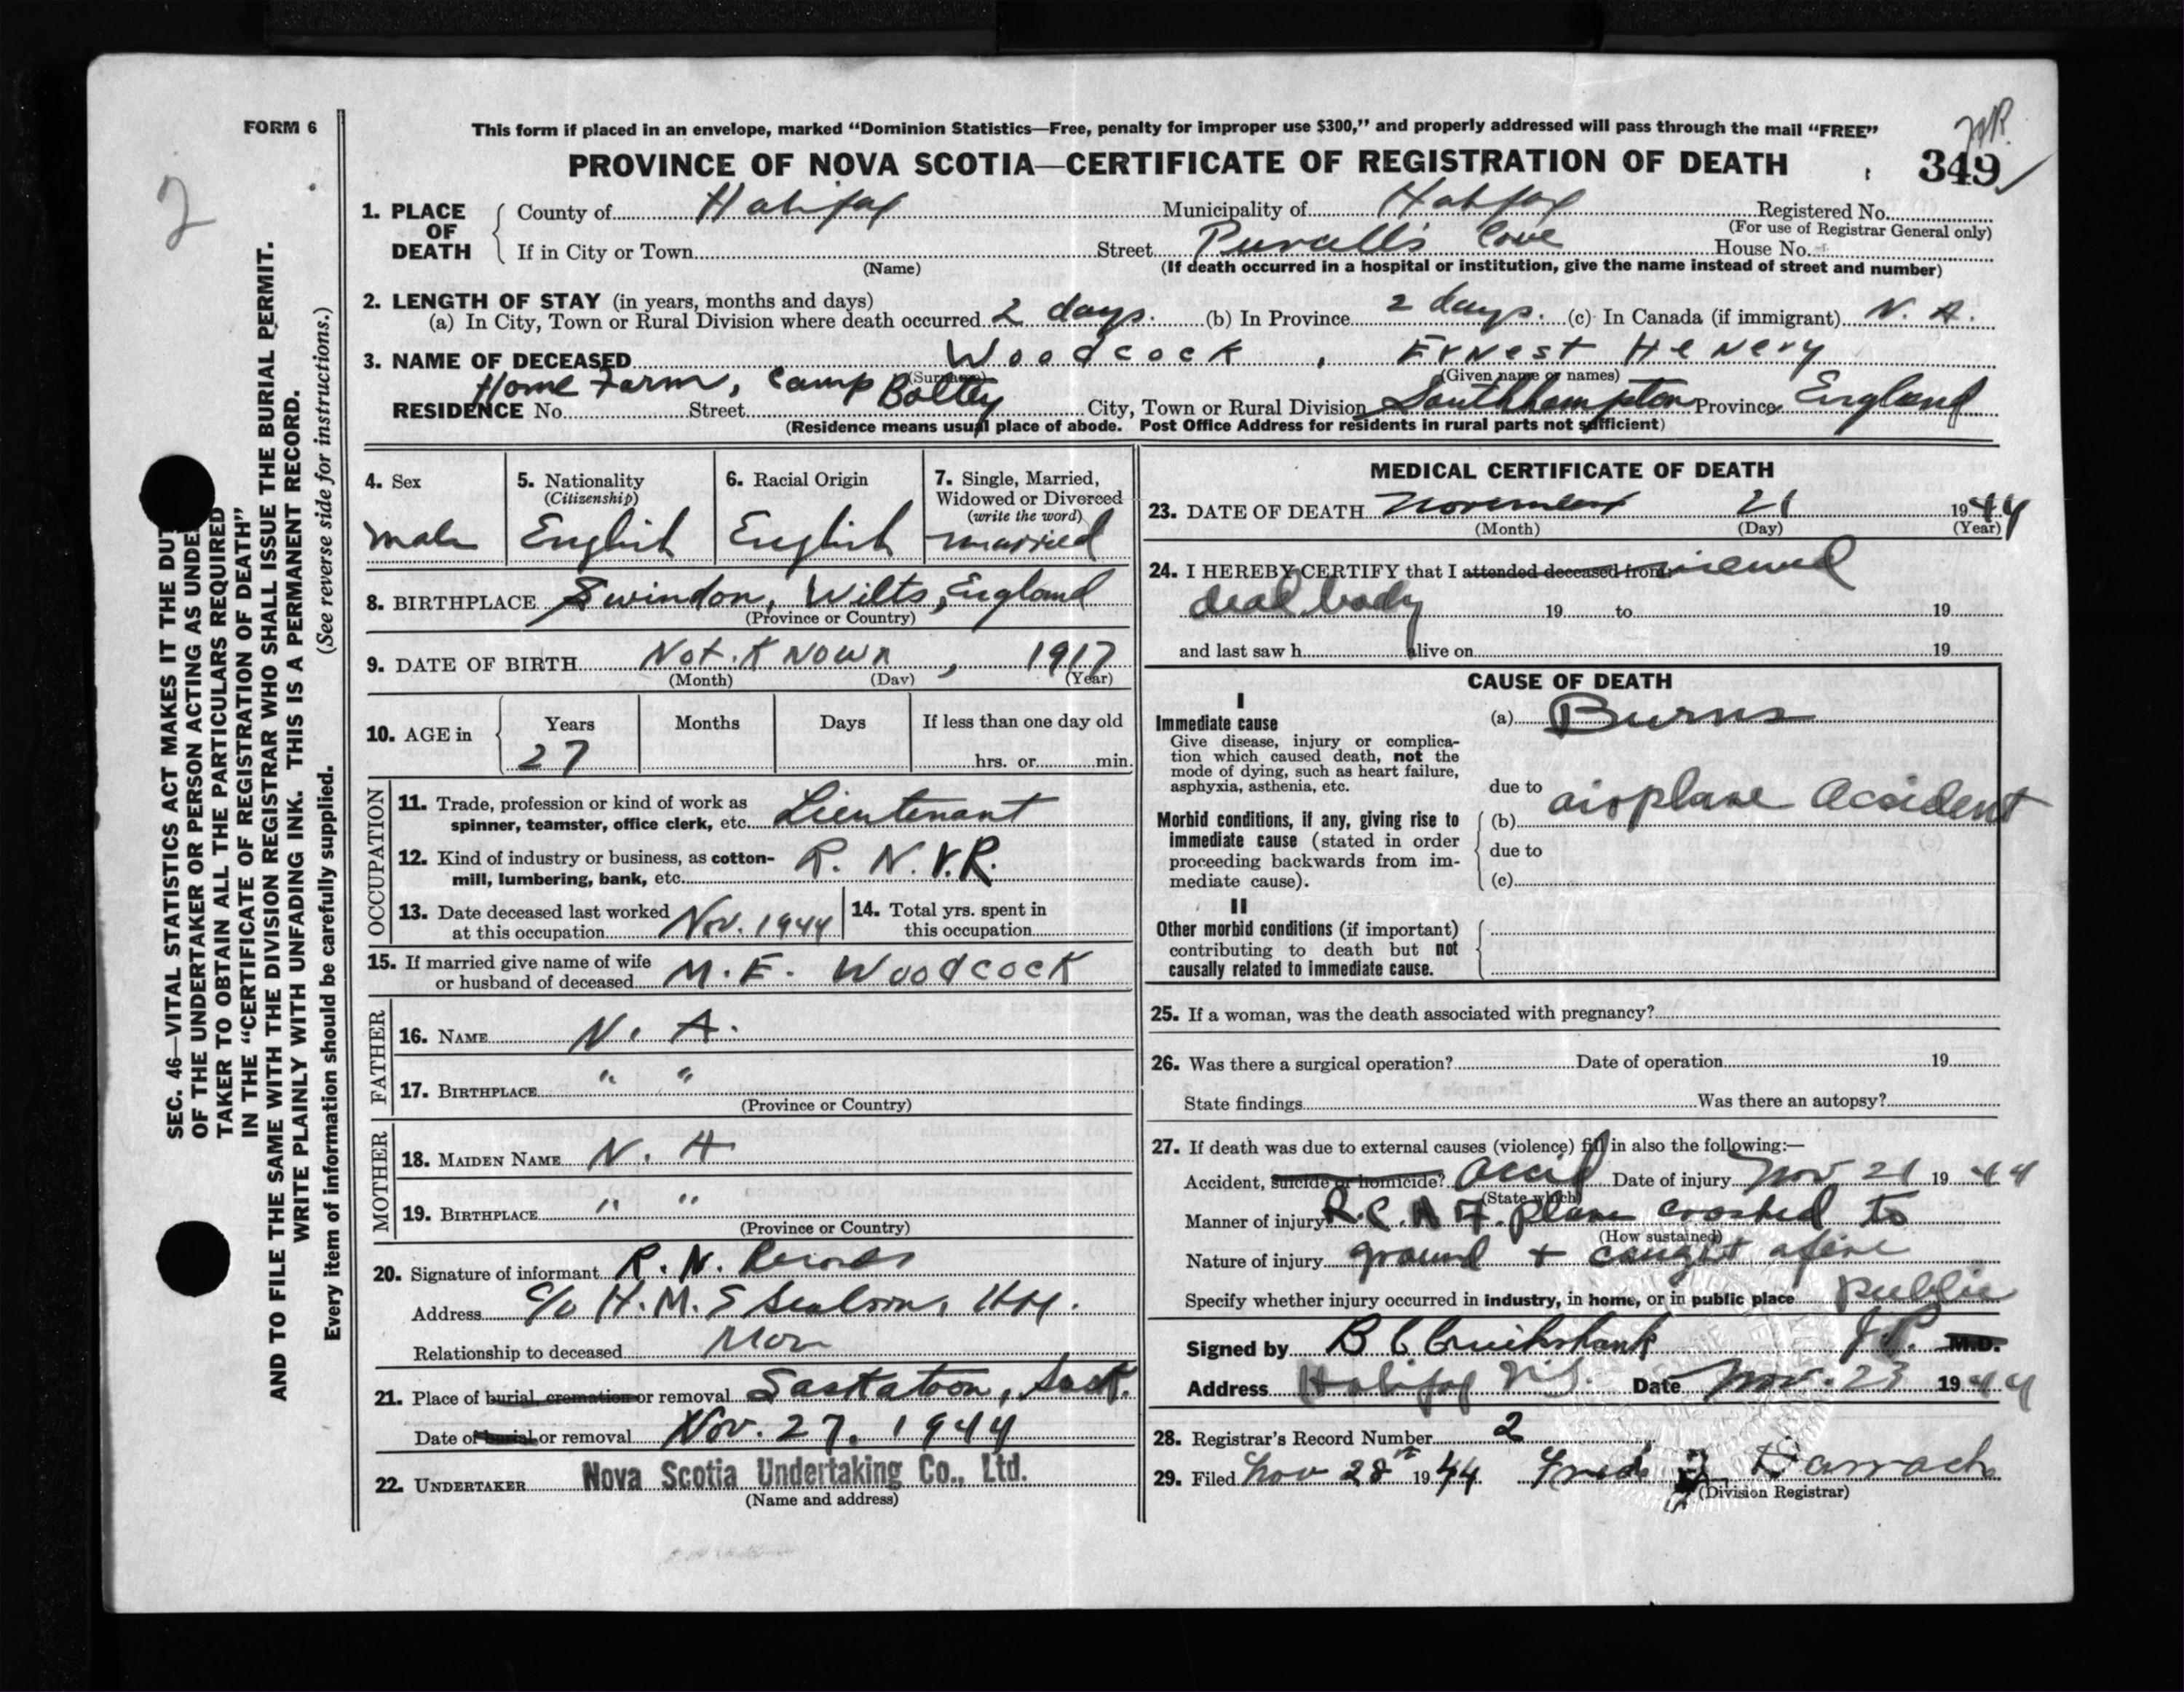 FORM 6
This form if placed in an envelope, marked “Dominion Statistics—Free, penalty for improper use $300,” and properly addressed will pass through the mail “FREE”
PROVINCE OF NOVA SCOTIA—CERTIFICATE OF REGISTRATION OF DEATH
349
2
1. PLACE OF DEATH
County of Halifax Municipality of Halifax Registered No.
(For use of Registrar General only)
If in City or Town Street Purcell's Cove House No.
(Name) (If death occurred in a hospital or institution, give the name instead of street and number)
2. LENGTH OF STAY (in years, months and days)
(a) In City, Town or Rural Division where death occurred 2 days. (b) In Province 2 days. (c) In Canada (if immigrant) N. A.
3. NAME OF DECEASED Woodcock, Ernest Henery
(Surname) (Given name or names)
Home Farm, Camp Botley
RESIDENCE No. Street City, Town or Rural Division Southhampton Province England
(Residence means usual place of abode. Post Office Address for residents in rural parts not sufficient)
4. Sex
male
5. Nationality
(Citizenship)
English
6. Racial Origin
English
7. Single, Married,
Widowed or Divorced
(write the word)
married
8. BIRTHPLACE Swindon, Wilts, England
(Province or Country)
9. DATE OF BIRTH Not Known, 1917
(Month) (Day) (Year)
10. AGE in Years Months Days If less than one day old
27 hrs. or min.
OCCUPATION
11. Trade, profession or kind of work as
spinner, teamster, office clerk, etc. Lieutenant
12. Kind of industry or business, as cotton-
mill, lumbering, bank, etc. R. N. V. R.
13. Date deceased last worked
at this occupation Nov. 1944
14. Total yrs. spent in
this occupation
15. If married give name of wife
or husband of deceased M. E. Woodcock
FATHER
16. NAME N. A.
17. BIRTHPLACE " "
(Province or Country)
MOTHER
18. MAIDEN NAME N. A
19. BIRTHPLACE " "
(Province or Country)
20. Signature of informant R. N. Records
Address c/o H. M. S
Relationship to deceased
21. Place of burial, cremation or removal Saskatoon, Sask.
Date of burial or removal Nov. 27. 1944
22. UNDERTAKER Nova Scotia Undertaking Co., Ltd.
(Name and address)
MEDICAL CERTIFICATE OF DEATH
23. DATE OF DEATH November 21 1944
(Month) (Day) (Year)
24. I HEREBY CERTIFY that I attended deceased from viewed
dead body 19 to 19
and last saw h alive on 19
CAUSE OF DEATH
I
Immediate cause (a) Burns
Give disease, injury or complica-
tion which caused death, not the
mode of dying, such as heart failure,
asphyxia, asthenia, etc.
due to airplane accident
Morbid conditions, if any, giving rise to (b)
immediate cause (stated in order
proceeding backwards from im- due to
mediate cause). (c)
II
Other morbid conditions (if important)
contributing to death but not
causally related to immediate cause.
25. If a woman, was the death associated with pregnancy?
26. Was there a surgical operation? Date of operation 19
State findings Was there an autopsy?
27. If death was due to external causes (violence) fill in also the following:—
Accident, suicide or homicide? Accid Date of injury Nov 21 1944
(State which)
Manner of injury R.C.A.F. plane crashed to
(How sustained)
Nature of injury ground + caught afire
Specify whether injury occurred in industry, in home, or in public place public
Signed by B C Cruikshank J.P. M.D.
Address Halifax N.S. Date Nov. 23 1944
28. Registrar's Record Number 2
29. Filed Nov 28th 1944 Darrach
(Division Registrar)
SEC. 46—VITAL STATISTICS ACT MAKES IT THE DUT
OF THE UNDERTAKER OR PERSON ACTING AS UNDE
TAKER TO OBTAIN ALL THE PARTICULARS REQUIRED
IN THE “CERTIFICATE OF REGISTRATION OF DEATH”
AND TO FILE THE SAME WITH THE DIVISION REGISTRAR WHO SHALL ISSUE THE BURIAL PERMIT.
WRITE PLAINLY WITH UNFADING INK. THIS IS A PERMANENT RECORD.
Every item of information should be carefully supplied. (See reverse side for instructions.)